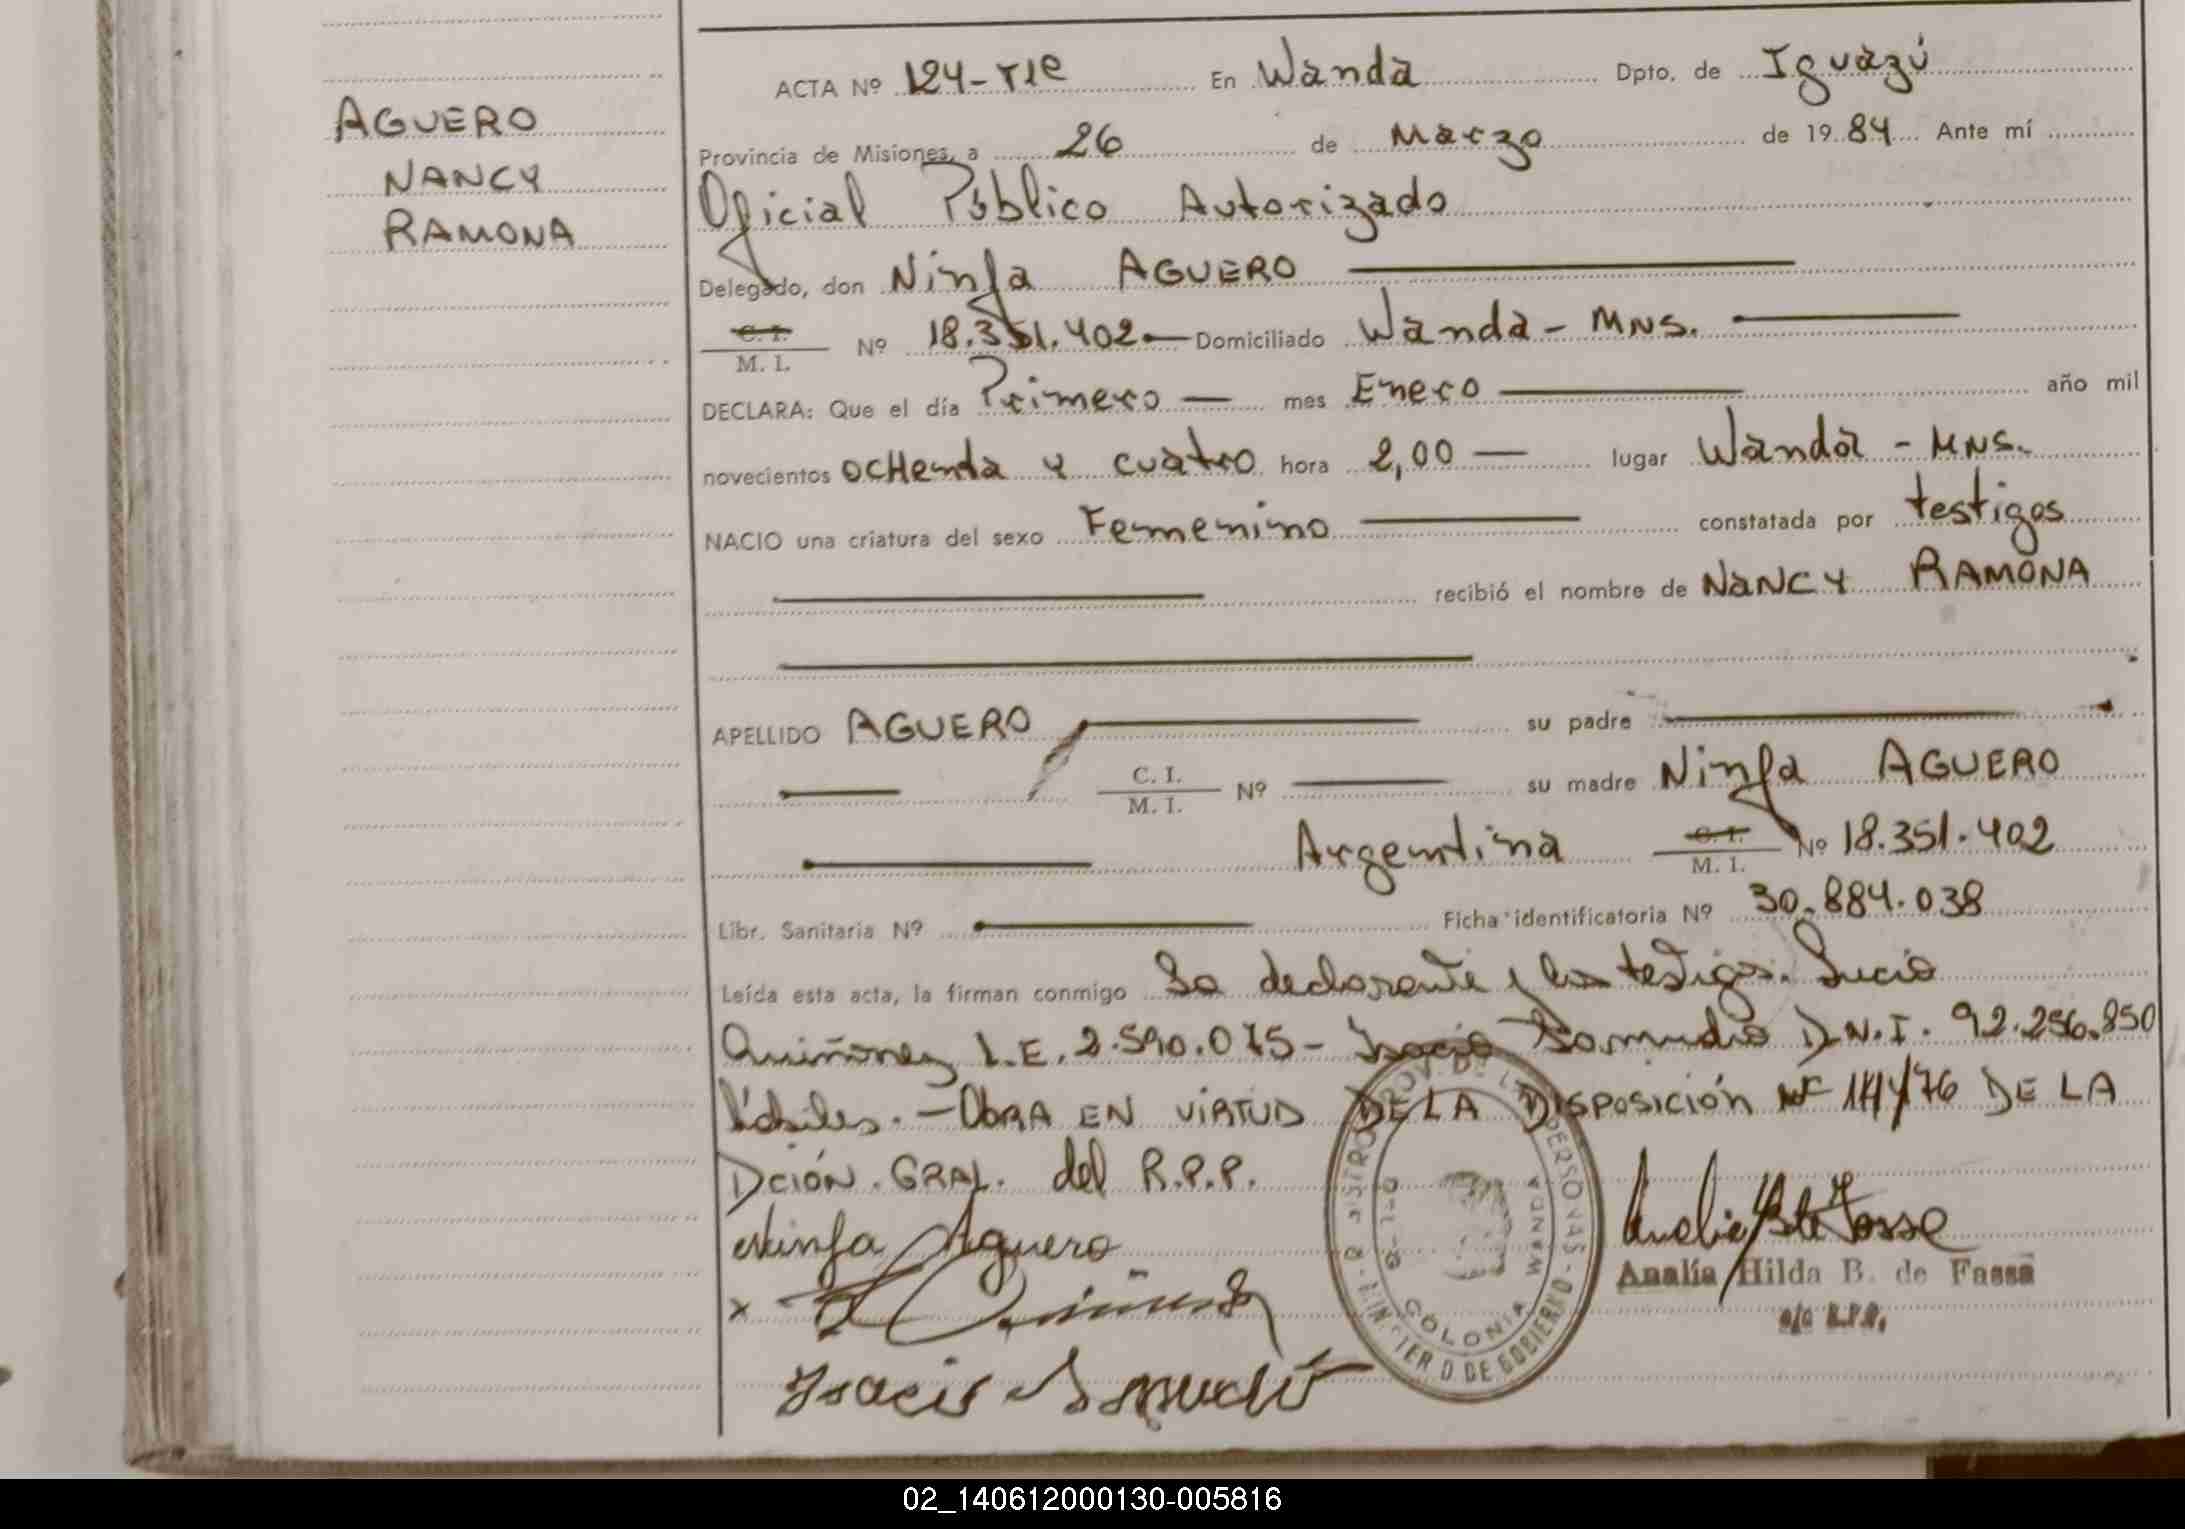 AGUERO
NANCY
RAMONA
ACTA Nº 124-TIE En Wanda Dpto. de Iguazú
Provincia de Misiones, a 26 de Marzo de 1984 Ante mí
Oficial Público Autorizado
Delegado, don Ninfa AGUERO
C. I. / M. I. Nº 18.351.402 Domiciliado Wanda - MNS.
DECLARA: Que el día Primero mes Enero año mil
novecientos ocHenta y cuatro hora 2,00 lugar Wanda - MNS.
NACIO una criatura del sexo Femenino constatada por testigos
recibió el nombre de NANCY RAMONA
APELLIDO AGUERO su padre
C. I. / M. I. Nº su madre Ninfa AGUERO
Argentina C. I. / M. I. Nº 18.351.402
Libr. Sanitaria Nº Ficha identificatoria Nº 30.884.038
Leída esta acta, la firman conmigo La declarante y los testigos. Lucio
Quiñonez L.E. 2.590.075 - Isacio Samudio D.N.I. 92.256.850
hábiles. - Obra EN VIRTUD DE LA DISPOSICIÓN Nº 14/76 DE LA
DCIÓN. GRAL. del R.P.P.
Ninfa Aguero
Isacio Samudio
COLONIA WANDA
MINISTERIO DE GOBIERNO
Analía Hilda B. de Fassa
a/c R.P.P.
02_140612000130-005816